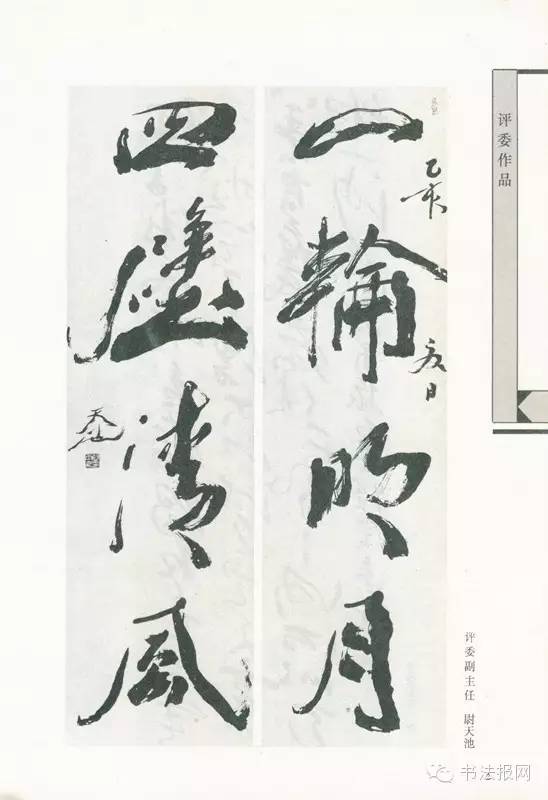 评委作品
一輪明月
乙亥
夏日
四壁清風
天池
评委副主任 尉天池
书法报网